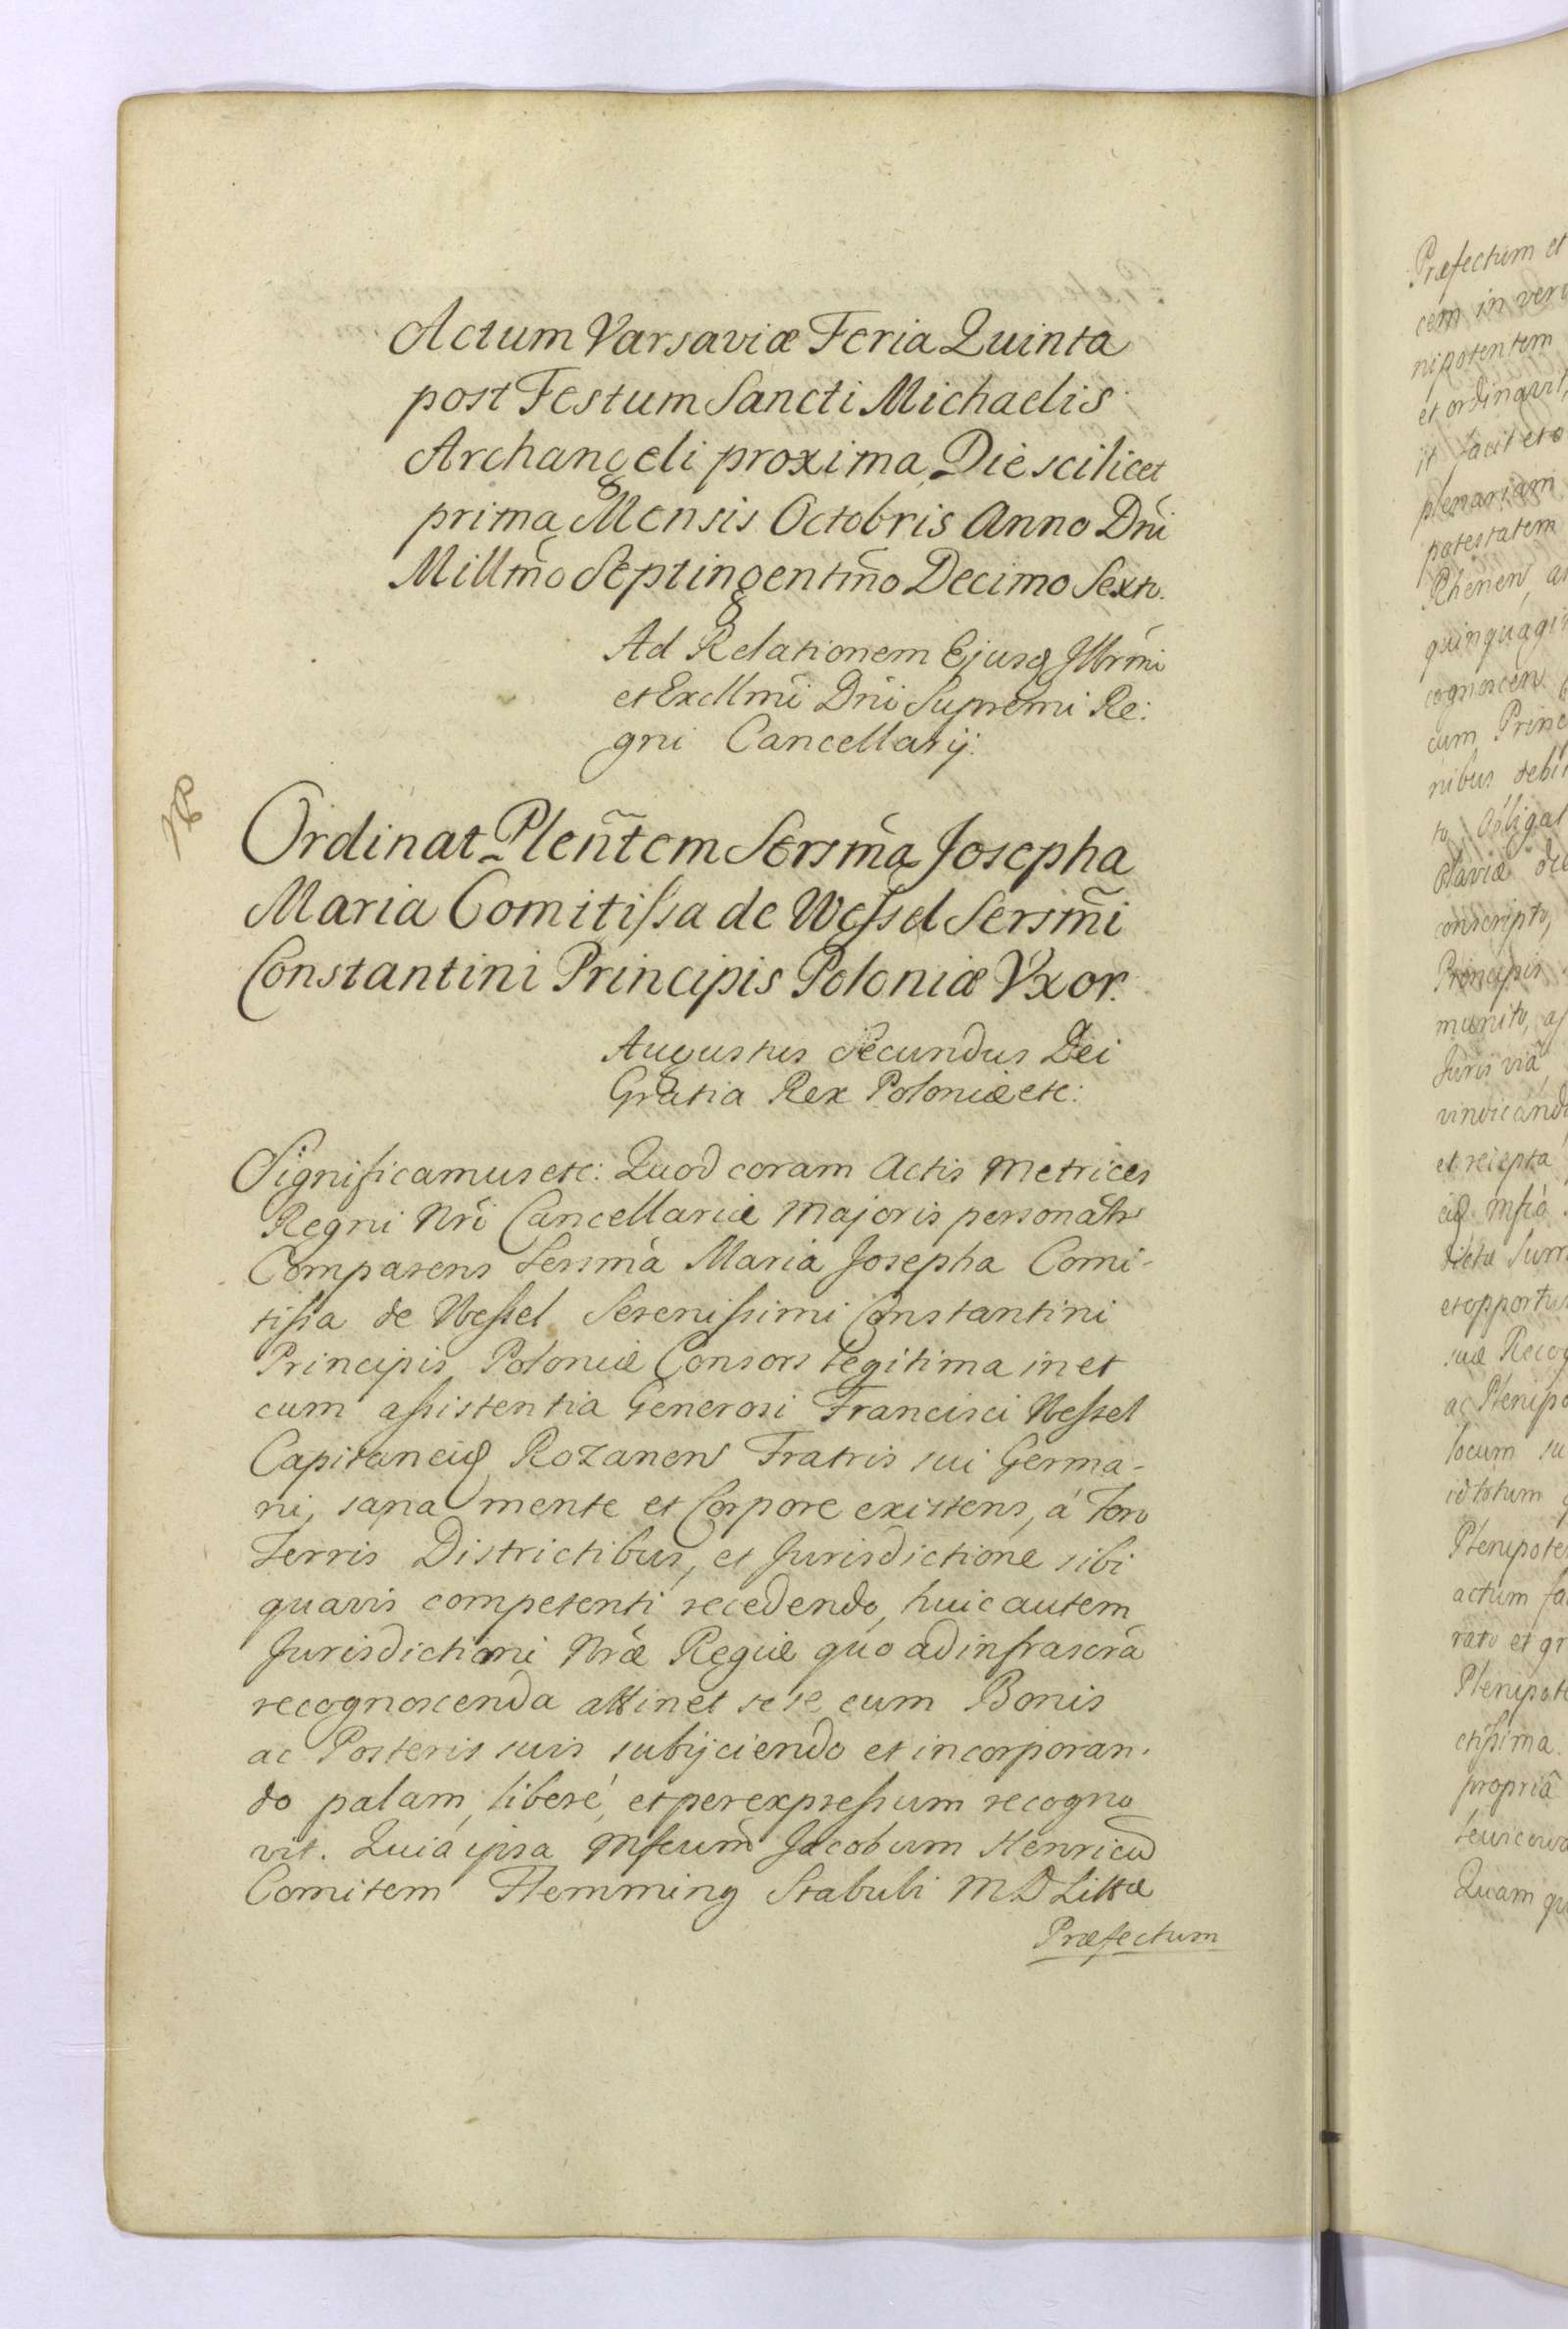 Actum Varsaviæ Feria Quinta
post Festum Sancti Michaelis
Archangeli proxima, Die scilicet
prima Mensis Octobris Anno Dni
Millm̃o Septingentm̃o Decimo Sexto.
Ad Relationem Ejusq Illrmi
et Excllmi Dni Supremi Re:
gni Cancellarij.
Ordinat Plen̄tem Sersm̃a Josepha
Maria Comitissa de Wessel Sersm̃i
Constantini Principis Poloniæ Vxor.
Augustus Secundus Dei
Gratia Rex Poloniæ etc:
Significamus etc: Quod coram Actis Metrices
Regni Nri Cancellariæ Majoris personalr
Comparens Sersma Maria Josepha Comi-
tissa de Wessel Serenissimi Constantini
Principis Poloniæ Consors legitima in et
cum assistentia Generosi Francisci Wessel
Capitanei Rozanens Fratris sui Germa-
ni, sana mente et Corpore existens, á Foro
Terris Districtibus, et Jurisdictione sibi
quavis competenti recedendo, huic autem
Jurisdictioni Nræ Regiæ quó ad infrascra
recognoscenda attinet sese cum Bonis
ac Posteris suis subijciendo et incorporan-
do palam, liberé, et per expressum recogno
vit. Quiá ipsa Mfcum Jacobum Henricu
Comitem Flemming Stabuli M D Litt̃æ
Præfectum
Præfectum et
cem in ver
nipotentem
et ordinavit,
it facit et o
plenariam
potestatem
Rhenen, a
quinquagi
cognoscen
cum Princ
nibus debi
to, Obligat
conscripto,
Principis
munito, a
Juris via
vindicand
et recepta
dicta Sum
et opportu
suæ Recog
ac Plenipo
locum su
id totum
Plenipote
actum fa
rato et gr
Plenipote
ctissima.
propriâ
Quam qu